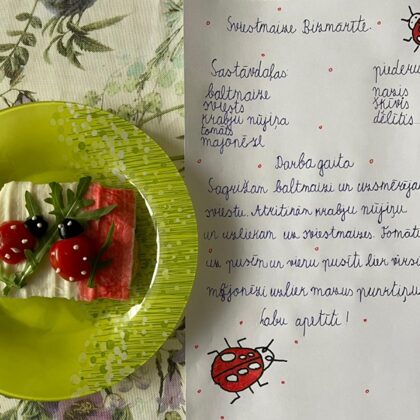 Sviestmaize Bizmārīte.
Sastāvdaļas
baltmaize
sviests
krabju nūjiņa
tomāts
majonēze
piederu
nazis
šķīvis
dēlītis
Darba gaita
Sagriežam baltmaizi un uzsmērēja
sviestu. Atritinām krabju nūjiņu
un uzliekam uz sviestmaizes. Tomāt
uz pusēm un vienu pusīti liek virsū
majonēzi uzliek mazus punktiņu
Labu apetīti!